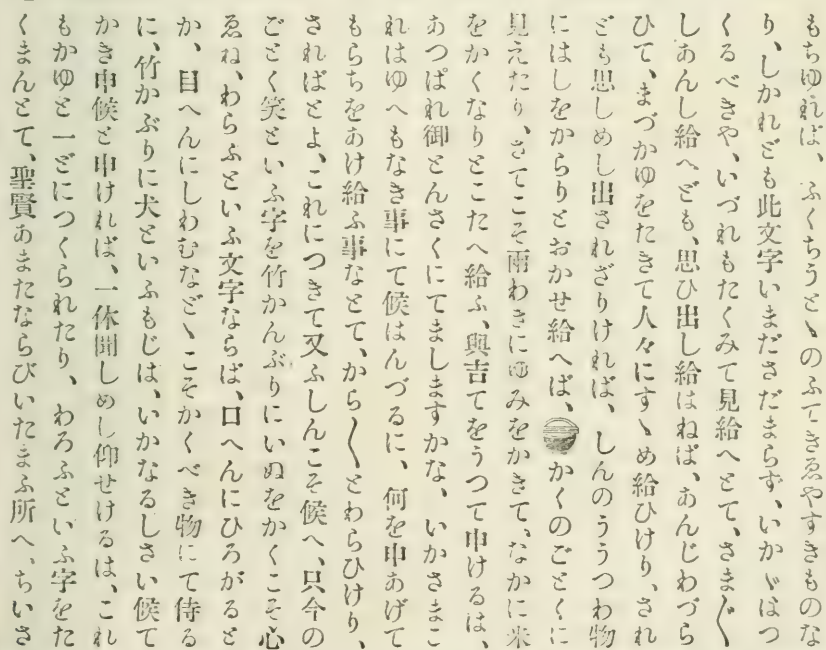 もちゆれば、ふくちうとゝのふてきゑやすきものな
り、しかれども此文字いまださだまらず、いかゞはつ
くるべきや、いづれもたくみて見給へとて、さま〲
しあんし給へども、思ひ出し給はねば、あんじわづら
ひて、まづかゆをたきて人々にすゝめ給ひけり、され
ども思しめし出されざりければ、しんのううつわ物
にはしをからりとおかせ給へば、かくのごとくに
見えたり、さてこそ兩わきにゆみをかきて、なかに米
をかくなりとこたへ給ふ、與吉てをうつて申けるは、
あつぱれ御とんさくにてましますかな、いかさまこ
れはゆへもなき事にて候はんづるに、何を申あげて
もらちをあけ給ふ事なとて、から〱とわらひけり、
さればとよ、これにつきて又ふしんこそ候へ、只今の
ごとく笑といふ字を竹かんぶりにいぬをかくこそ心
ゑね、わらふといふ文字ならば、口へんにひろがると
か、目へんにしわむなどゝこそかくべき物にて侍る
に、竹かぶりに犬といふもじは、いかなるしさい候て
かき申候と申ければ、一休聞しめし仰せけるは、これ
もかゆと一どにつくられたり、わろふといふ字をた
くまんとて、聖賢あまたならびいたまふ所へ、ちいさ